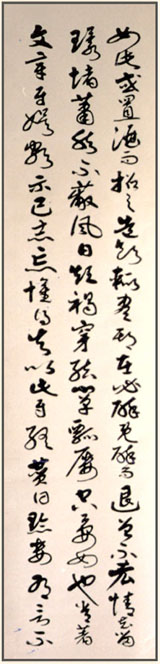 如此或置酒而招之造飲輒盡期在必醉既醉而退曾不吝情去留
環堵蕭然不蔽風日短褐穿結簞瓢屢空晏如也常著
文章自娛頗示己志忘懷得失以此自終贊曰黔婁有言不